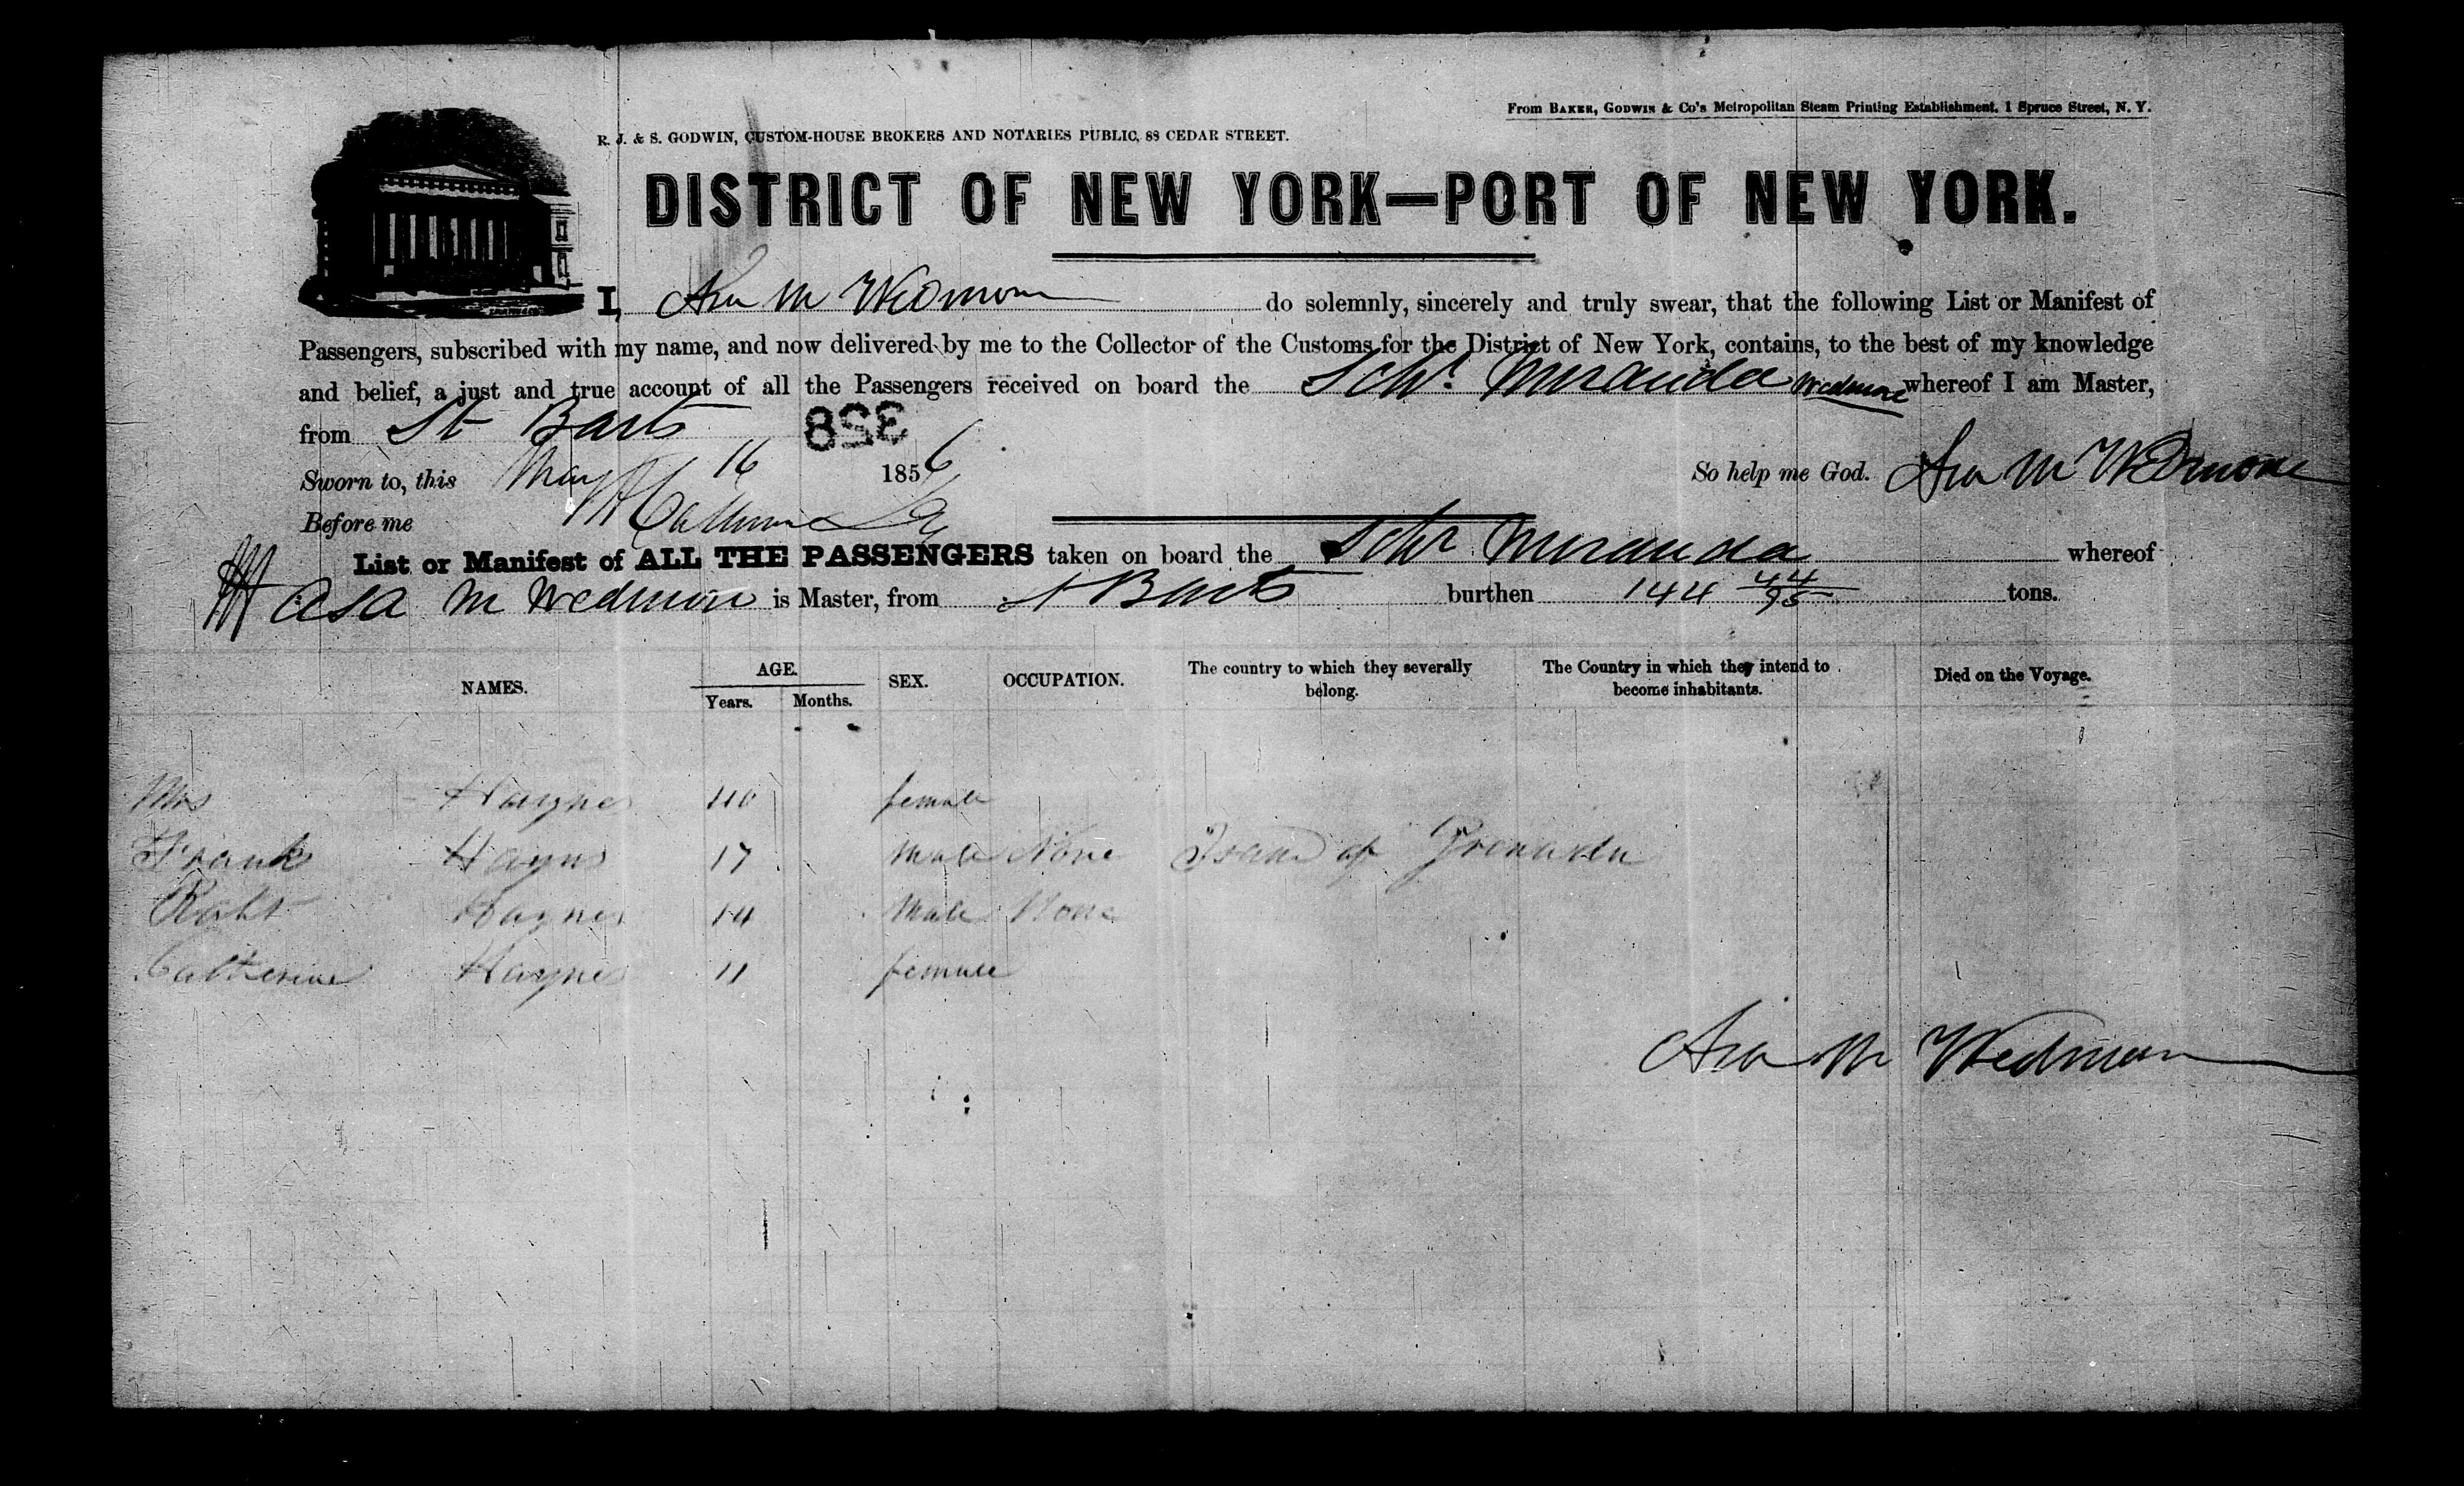 From BAKER, GODWIN & Co's Metropolitan Steam Printing Establishment, 1 Spruce Street, N. Y.
R. J. & S. GODWIN, CUSTOM-HOUSE BROKERS AND NOTARIES PUBLIC, 88 CEDAR STREET.
DISTRICT OF NEW YORK—PORT OF NEW YORK.
I, Asa M Wedmore do solemnly, sincerely and truly swear, that the following List or Manifest of
Passengers, subscribed with my name, and now delivered by me to the Collector of the Customs for the District of New York, contains, to the best of my knowledge
and belief, a just and true account of all the Passengers received on board the Schr. Miranda Wedmore whereof I am Master,
from St Barts 358
Sworn to, this May 16 1856 So help me God. Asa M Wedmore
Before me
List or Manifest of ALL THE PASSENGERS taken on board the Schr Miranda whereof
Asa M Wedmore is Master, from St Barts burthen 144 44/95 tons.
NAMES. AGE. Years. Months. SEX. OCCUPATION. The country to which they severally belong. The Country in which they intend to become inhabitants. Died on the Voyage.
Mrs Haynes 40 female
Frank Hayns 17 male None Island of Grenada
Robt Haynes 14 Male None
Catherine Haynes 11 female
Asa M Wedmore